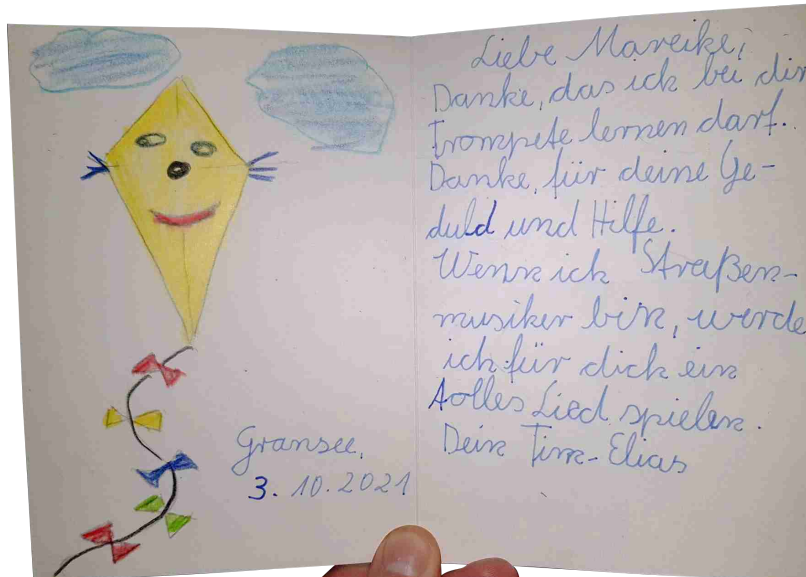 Gransee,
3. 10. 2021
Liebe Mareike,
Danke, das ich bei dir
Trompete lernen darf.
Danke, für deine Ge-
duld und Hilfe.
Wenn ich Straßen-
musiker bin, werde
ich für dich ein
tolles Lied spielen.
Dein Tim-Elias